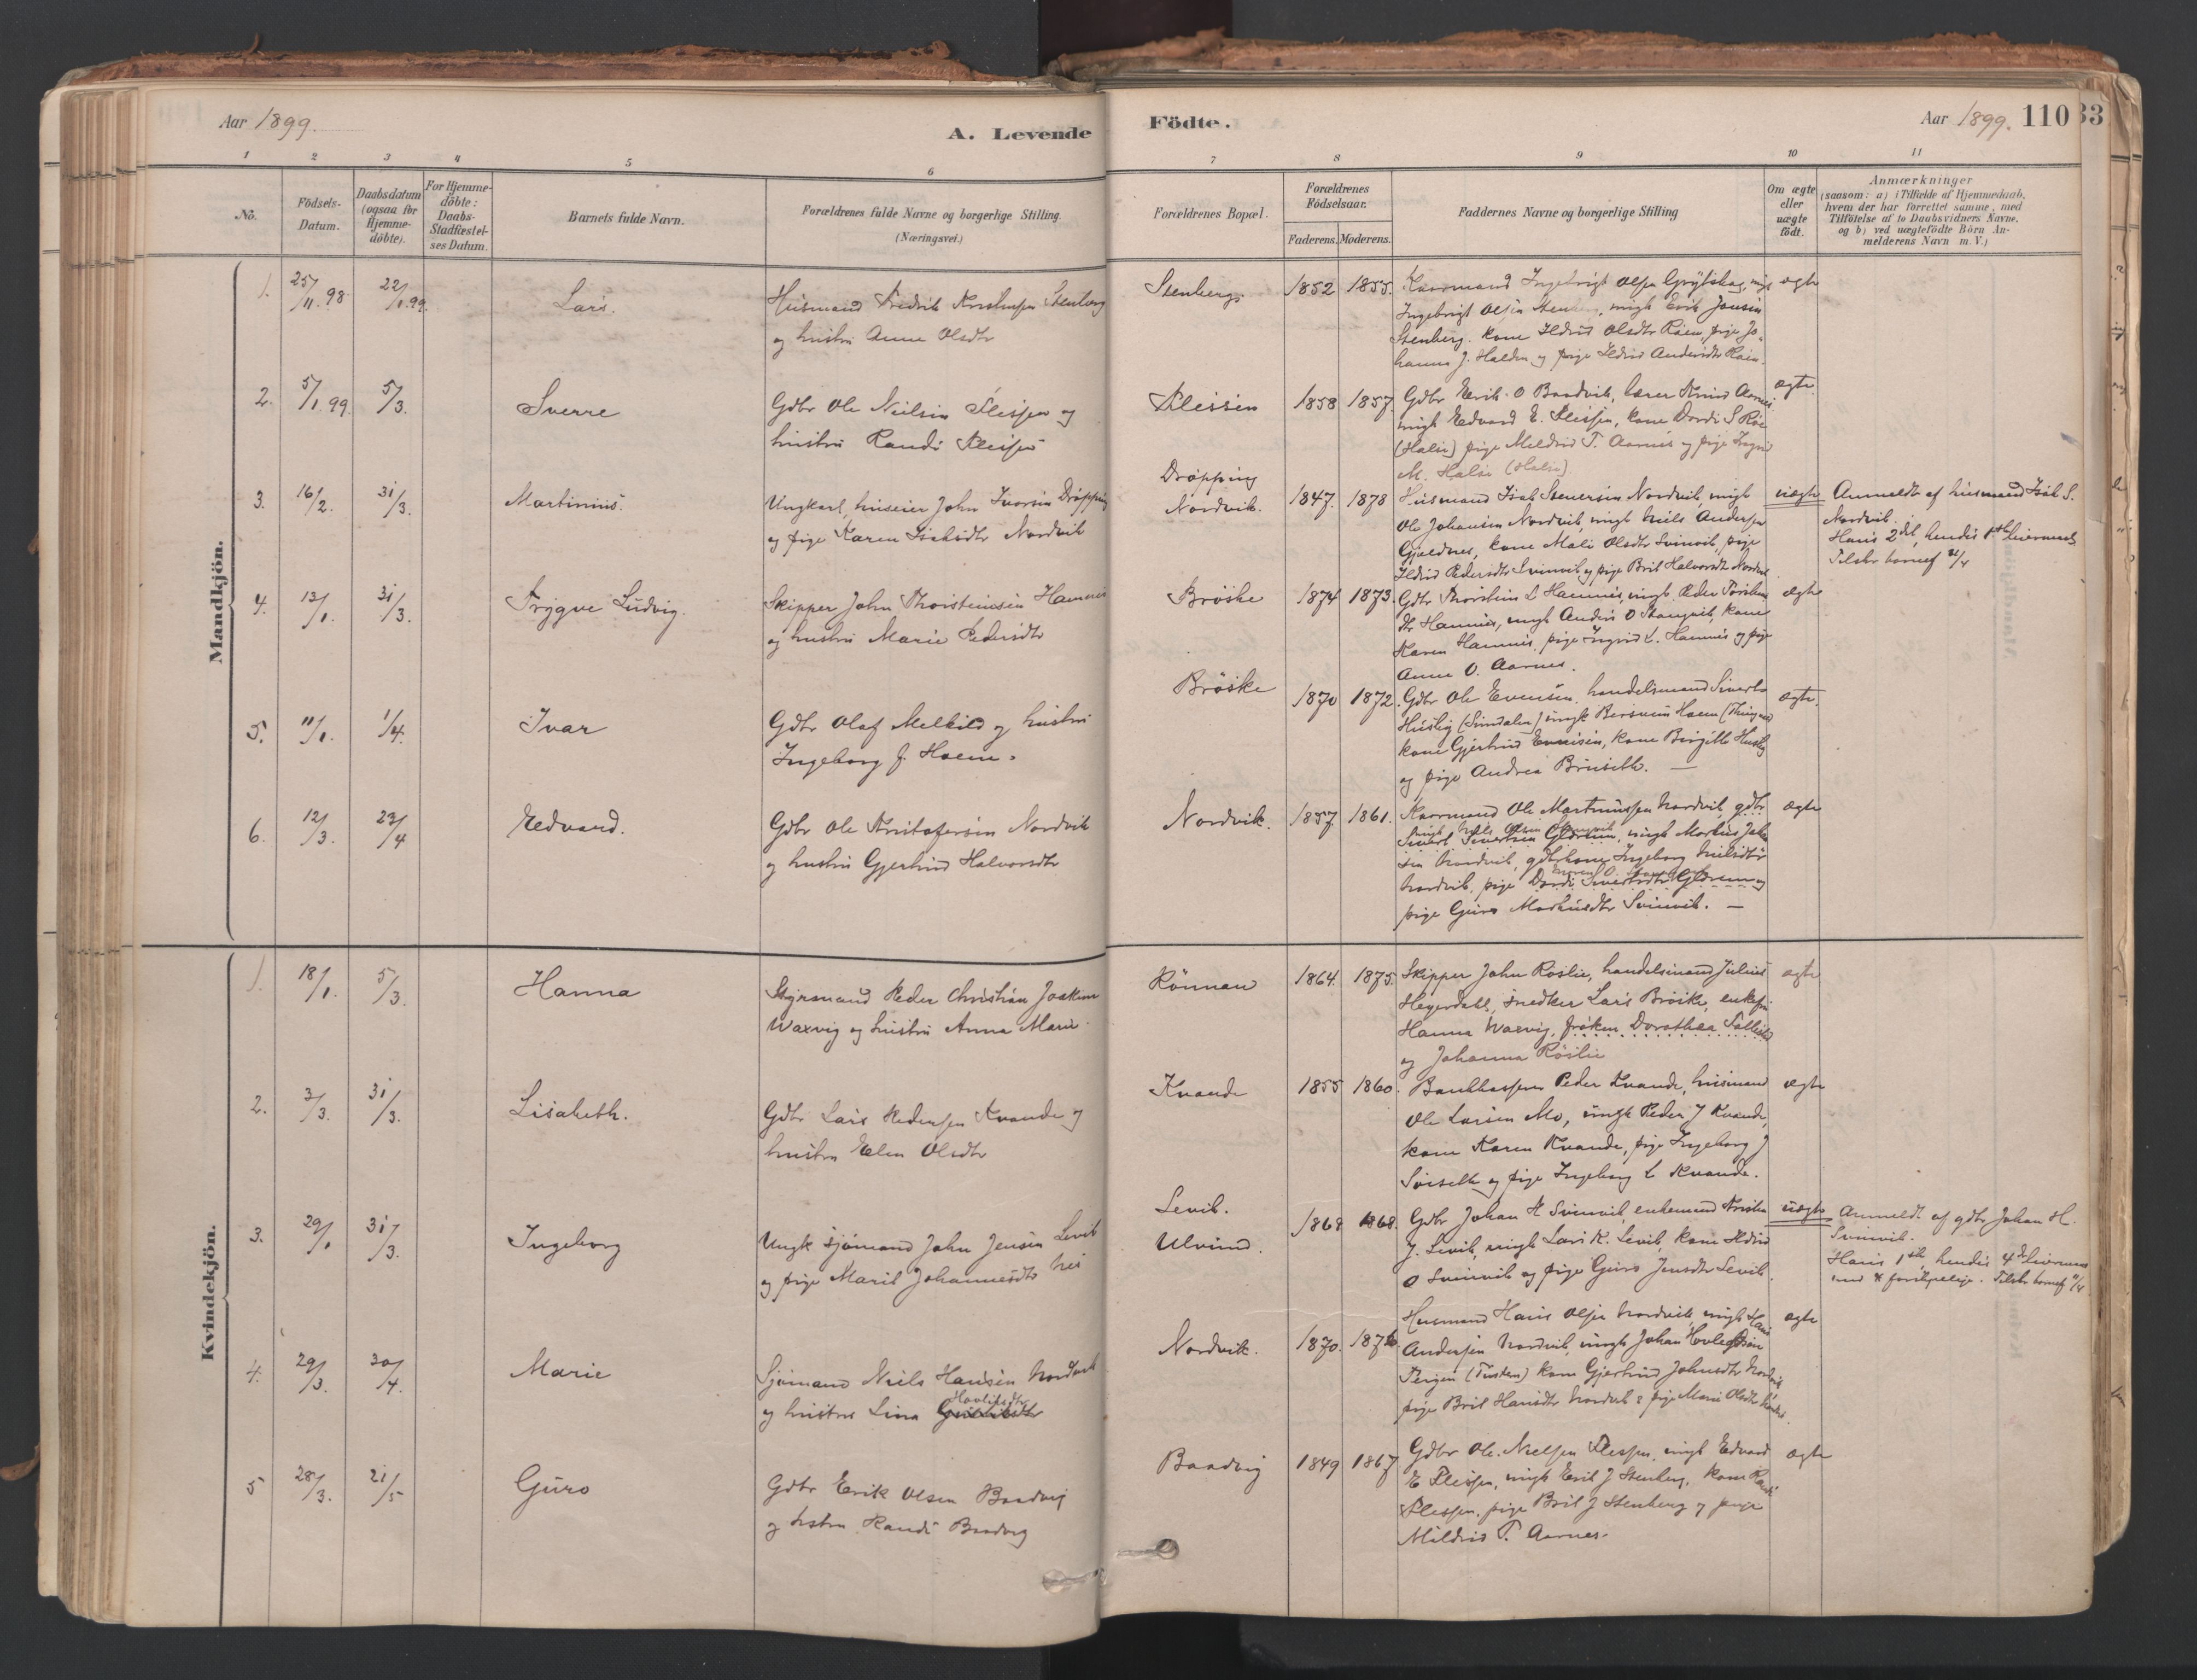 Aar 1899.
A. Levende
Födte.
Aar 1899. 110 33
1 2 3 4 5 6 7 8 9 10 11
No.
Födsels-Datum.
Daabsdatum (ogsaa for Hjemme-döbte).
For Hjemme-döbte: Daabs-Stadfæstel-ses Datum.
Barnets fulde Navn.
Forældrenes fulde Navne og borgerlige Stilling.
(Næringsvei.)
Forældrenes Bopæl.
Forældrenes Födselsaar.
Faderens. Moderens.
Faddernes Navne og borgerlige Stilling
Om ægte eller uægte födt.
Anmærkninger
(saasom: a) i Tilfælde af Hjemmedaab,
hvem der har forrettet samme, med
Tilföielse af to Daabsvidners Navne,
og b) ved uægtefödte Börn An-
melderens Navn m. V.)
Mandkjön.
1. 25/11.98 22/1.99. Lars.
Husmand Fredrik Stenberg
og hustru Anne Olsdtr
Stenberg. 1852 1855.
Ingebrigt Olsen
Ingebrigt Olsen Stenberg, ungk Erik Jonsen
Stenberg. kone Ildrid Olsdtr Röen, pige Jo-
hanna J. Halden og pige Ildrid Andersdtr Röen.
ægte
2. 5/1.99. 5/3. Sverre
Gdbr Ole Nielsen Flessen og
hustru Randi Flessen
Flessen 1858 1857.
Gdbr Erik O Baadvik, lærer Knud Aarnes
ungk Edvard E. Flessen, kone Dordi S Röe
(Halse) pige Meldrid T. Aarnes og pige Ingrid
M. Halse (Halse)
ægte
3. 16/2. 31/3. Martinus.
Ungkarl, huseier John Iversen Dröpping
og pige Karen Isaksdtr Nordvik
Dröpping
Nordvik. 1847. 1878
Husmand Isak Steversen Nordvik, ungk
Ole Johansen Nordvik, ungk Niels Andersen
Gjeldnes, kone Mali Olsdtr Svinvik, pige
Ildrid Pedersdtr Svinvik og pige Brit Halvorsdt Nordvik
uægte
Anmeldt af husmand Isak S.
Nordvik.
Hans 2det, hendes 1ste Leiermaal
4. 13/1. 31/3. Trygve Ludvig.
Skipper John Thorsteinsen Hamnes
og hustru Marie Pedersdtr
Bröske 1874 1873.
Gdbr Thorstein L Hamnes, ungk Peder
Hamnes, ungk Anders O Stangvik, kone
Karen Hamnes, pige Ingrid L. Hamnes og pige
Anne O. Aarnes.
ægte
5. 11/1. 1/4. Ivar
Gdbr Olaf Melkild og hustru
Ingeborg f. Hoem.
Bröske 1870 1872.
Gdbr Ole Evensen, handelsmand Sivert
Husby (Surndalen) ungk Hoem
kone Gjertrud Evensen, kone Birgitte Husby
og pige Andrea Bruseth. —
ægte.
6. 12/3. 23/4 Edvard.
Gdbr Ole Kristofersen Nordvik
og hustru Gjertrud Halvorsdtr
Nordvik. 1857. 1861.
Ole Martinussen Nordvik, gdbr
ungk Niels Olsen
Sivert Sivertsen Glærem, ungk Markus Johan-
sen Nordvik, gdbrkone Ingeborg Nielsdtr
Nordvik, pige Dordi Sivertsdtr Glærem og
pige Guro Markusdtr Svinvik. —
ægte
Kvindekjön.
1. 18/1. 5/3. Hanna
Styrmand Peder Christian Joakim
Waxvig og hustru Anna Marie.
Rönnau 1864. 1875.
Skipper John Röslie, handelsmand Julius
Heyerdahl, snedker Lars Bröske, enkefru
Hanna Waxvig, fröken Dorothea
og Johanna Röslie
ægte
2. 3/3. 31/3. Lisabeth.
Gdbr Lars Pedersen Kvande og
hustru Elen Olsdtr
Kvande 1855 1860.
Bankkasserer Peder Kvande, husmand
Ole Larsen Mo, ungk Peder J Kvande,
kone Karen Kvande, pige Ingeborg J
og pige Ingeborg L Kvande.
ægte
3. 29/1 31/3. Ingeborg
Ungk sjömand John Jensen Levik
og pige Marit Johannesdtr
Levik.
Ulvund. 1868 1868.
Gdbr Johan H Svinvik, enkemand Kristen
J. Levik, ungk Lars K. Levik, kone Ildrid
O Svinvik og pige Guro Jensdtr Levik.
uægte
Anmeldt af gdbr Johan H.
Svinvik.
Hans 1ste, hendes 4de Leiermaal
4. 29/3. 30/4. Marie
Sjömand Niels Hansen Nordvik
og hustru Lina Hovlefsdtr
Nordvik. 1870. 1876.
Husmand Hans Olsen Nordvik, ungk Hans
Andersen Nordvik, ungk Johan Hovlefsen
(Tusteren) kone Gjertrud Johnsdtr Nordvik
pige Brit Hansdtr Nordvik & pige Marie Olsdtr
ægte
5 28/3. 21/5 Guro
Gdbr Erik Olsen Baadvig
og hustru Randi Baadvig
Baadvig 1849 1867
Gdbr Ole Nielsen Flessen, ungk Edvard
E Flessen, ungk Erik J Stenberg, kone Randi
Flessen, pige Brit J Stenberg og pige
Mildrid T. Aarnes.
ægte